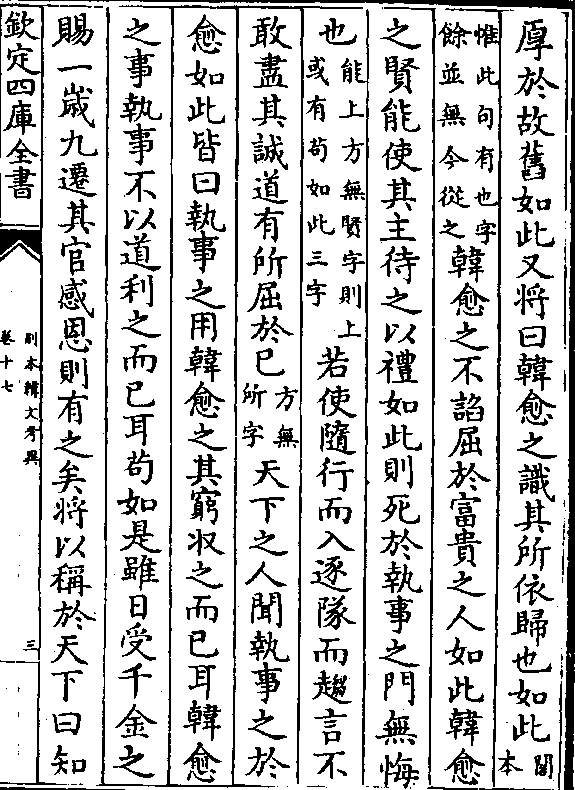 厚於故舊如此又將曰韓愈之識其所依歸也如此閣本
惟此句有也字餘並無今從之韓愈之不諂屈於富貴之人如此韓愈
之賢能使其主待之以禮如此則死於執事之門無悔
也能上方無賢字則上或有苟如此三字若使隨行而入逐隊而趨言不
敢盡其誠道有所屈於已方無所字天下之人聞執事之於
愈如此皆曰執事之用韓愈之其窮収之而已耳韓愈
之事執事不以道利之而已耳苟如是雖日受千金之
賜一歲九遷其官感恩則有之矣將以稱於天下曰知
欽定四庫全書
別本韓文考異
卷十七
三